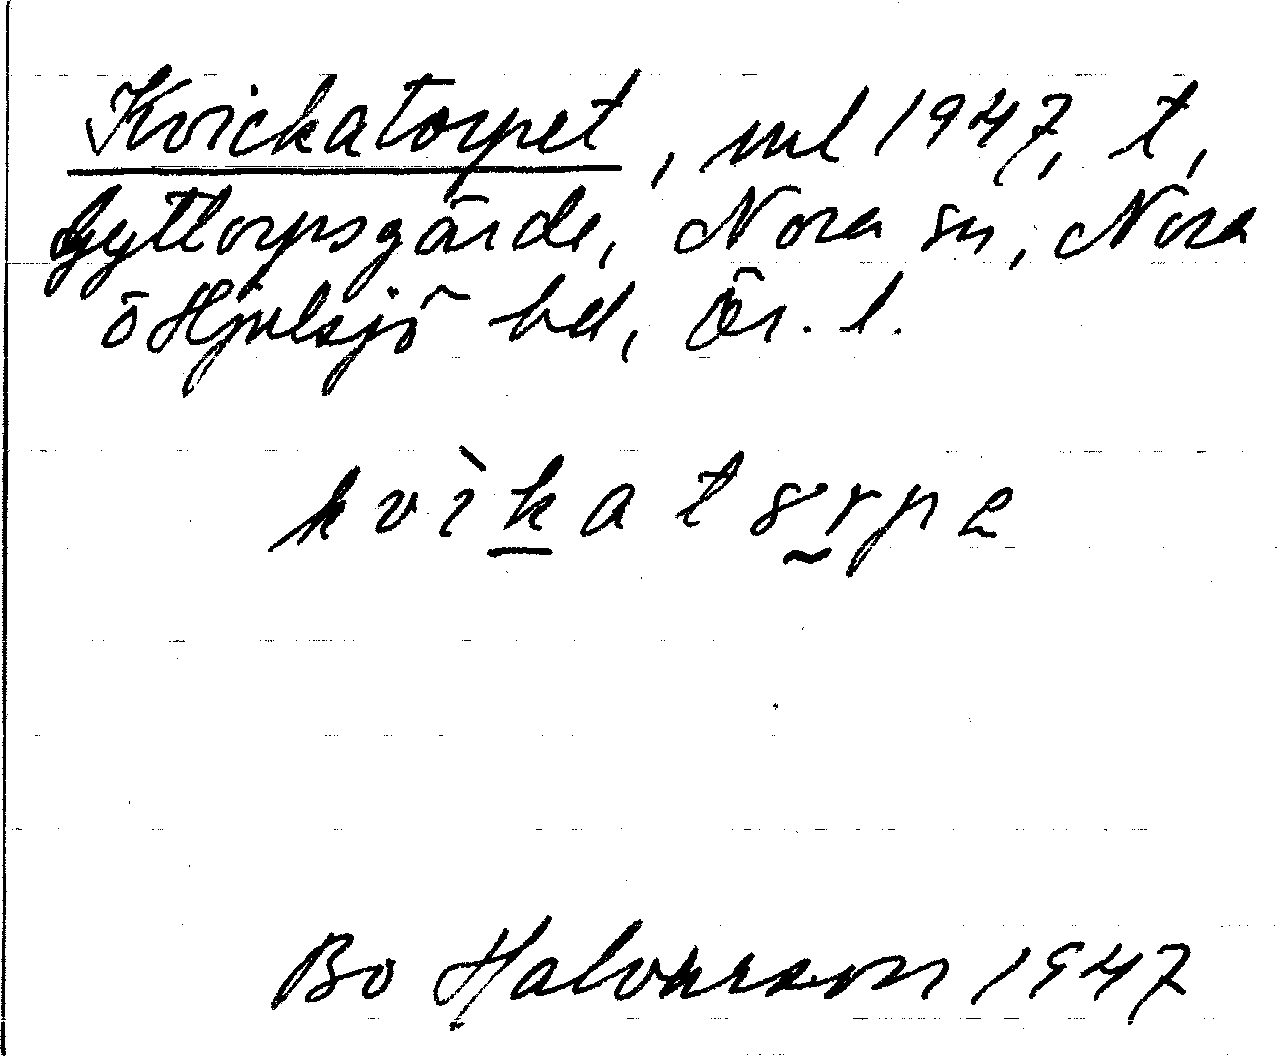 Kvickatorpet, uml 1947, t,
Gyttorpsgärde, Nora sn, Nora
o Hjulsjö bd, Ör. l.
kvìkatørpe
Bo Halvarsson 1947